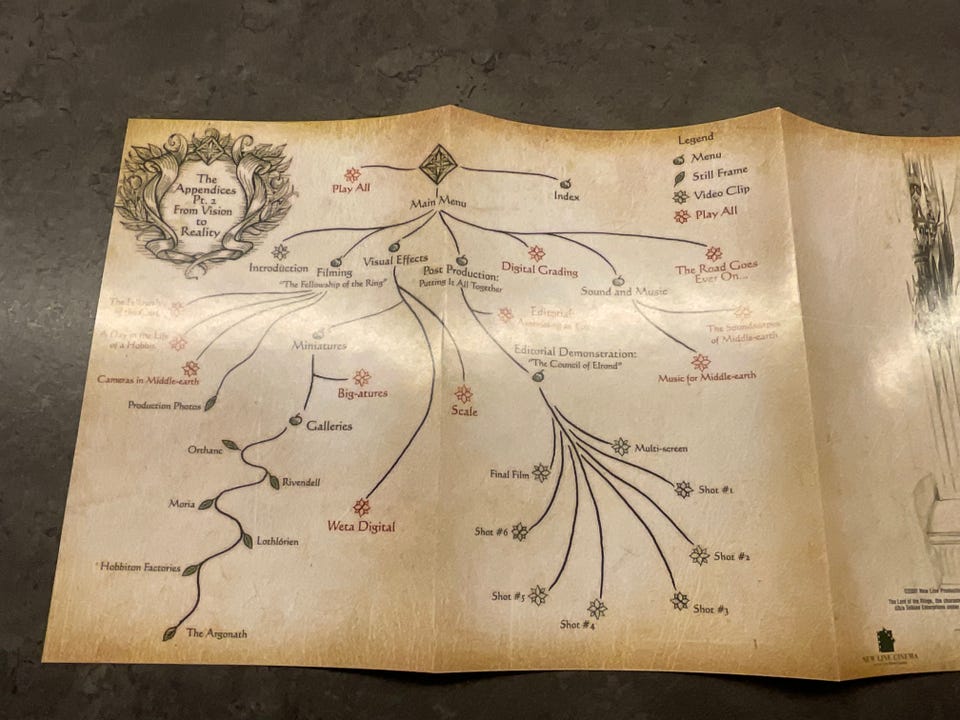 The
Appendices
Pt. 2
From Vision
to
Reality
Play All
Main Menu
Index
Legend
Menu
Still Frame
Video Clip
Play All
Introduction
Filming
"The Fellowship of the Ring"
Visual Effects
Post Production:
Putting It All Together
Digital Grading
Sound and Music
The Road Goes
Ever On...
The Fellowship
of the Cast
A Day in the Life
of a Hobbit
Cameras in Middle-earth
Production Photos
Miniatures
Big-atures
Galleries
Orthanc
Rivendell
Moria
Lothlórien
Hobbiton Factories
The Argonath
Weta Digital
Scale
Editorial:
Editorial Demonstration:
"The Council of Elrond"
The Soundscapes
of Middle-earth
Music for Middle-earth
Multi-screen
Final Film
Shot #1
Shot #2
Shot #3
Shot #4
Shot #5
Shot #6
New Line
The Lord of the Rings, the
NEW LINE CINEMA